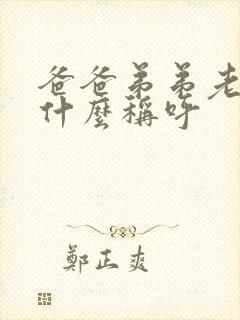 爸爸弟弟老
什麼稱呼
鄭正爽